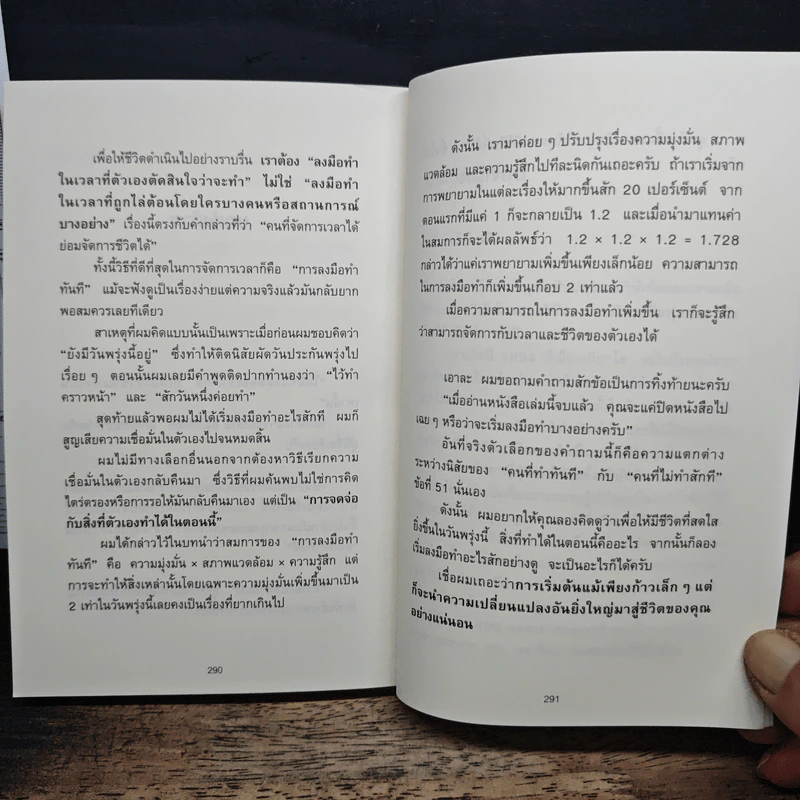 เพื่อให้ชีวิตดำเนินไปอย่างราบรื่น เราต้อง “ลงมือทำ
ในเวลาที่ตัวเองตัดสินใจว่าจะทำ” ไม่ใช่ “ลงมือทำ
ในเวลาที่ถูกไล่ต้อนโดยใครบางคนหรือสถานการณ์
บางอย่าง” เรื่องนี้ตรงกับคำกล่าวที่ว่า “คนที่จัดการเวลาได้
ย่อมจัดการชีวิตได้”
ทั้งนี้วิธีที่ดีที่สุดในการจัดการเวลาก็คือ “การลงมือทำ
ทันที” แม้จะฟังดูเป็นเรื่องง่ายแต่ความจริงแล้วมันกลับยาก
พอสมควรเลยทีเดียว
สาเหตุที่ผมคิดแบบนั้นเป็นเพราะเมื่อก่อนผมชอบคิดว่า
“ยังมีวันพรุ่งนี้อยู่” ซึ่งทำให้ติดนิสัยผัดวันประกันพรุ่งไป
เรื่อย ๆ ตอนนั้นผมเลยมีคำพูดติดปากทำนองว่า “ไว้ทำ
คราวหน้า” และ “สักวันหนึ่งค่อยทำ”
สุดท้ายแล้วพอผมไม่ได้เริ่มลงมือทำอะไรสักที ผมก็
สูญเสียความเชื่อมั่นในตัวเองไปจนหมดสิ้น
ผมไม่มีทางเลือกอื่นนอกจากต้องหาวิธีเรียกความ
เชื่อมั่นในตัวเองกลับคืนมา ซึ่งวิธีที่ผมค้นพบไม่ใช่การคิด
ไตร่ตรองหรือการรอให้มันกลับคืนมาเอง แต่เป็น “การจดจ่อ
กับสิ่งที่ตัวเองทำได้ในตอนนี้”
ผมได้กล่าวไว้ในบทนำว่าสมการของ “การลงมือทำ
ทันที” คือ ความมุ่งมั่น × สภาพแวดล้อม × ความรู้สึก แต่
การจะทำสิ่งเหล่านั้นโดยเฉพาะความมุ่งมั่นเพิ่มขึ้นมาเป็น
2 เท่าในวันพรุ่งนี้เลยคงเป็นเรื่องที่ยากเกินไป
290
ดังนั้น เรามาค่อย ๆ ปรับปรุงเรื่องความมุ่งมั่น สภาพ
แวดล้อม และความรู้สึกไปทีละนิดกันเถอะครับ ถ้าเราเริ่มจาก
การพยายามในแต่ละเรื่องให้มากขึ้นสัก 20 เปอร์เซ็นต์ จาก
ตอนแรกที่มีแค่ 1 ก็จะกลายเป็น 1.2 และเมื่อนำมาแทนค่า
ในสมการก็จะได้ผลลัพธ์ว่า 1.2 × 1.2 × 1.2 = 1.728
กล่าวได้ว่าแค่เราพยายามเพิ่มขึ้นเพียงเล็กน้อย ความสามารถ
ในการลงมือทำก็เพิ่มขึ้นเกือบ 2 เท่าแล้ว
เมื่อความสามารถในการลงมือทำเพิ่มขึ้น เราก็จะรู้สึก
ว่าสามารถจัดการกับเวลาและชีวิตของตัวเองได้
เอาละ ผมขอถามคำถามสักข้อเป็นการทิ้งท้ายนะครับ
“เมื่ออ่านหนังสือเล่มนี้จบแล้ว คุณจะแค่ปิดหนังสือไป
เฉย ๆ หรือว่าจะเริ่มลงมือทำบางอย่างครับ”
อันที่จริงตัวเลือกของคำถามนี้ก็คือความแตกต่าง
ระหว่างนิสัยของ “คนที่ทำทันที” กับ “คนที่ไม่ทำสักที”
ข้อที่ 51 นั่นเอง
ดังนั้น ผมอยากให้คุณลองคิดดูว่าเพื่อให้มีชีวิตที่สดใส
ยิ่งขึ้นในวันพรุ่งนี้ สิ่งที่ทำได้ในตอนนี้คืออะไร จากนั้นก็ลอง
เริ่มลงมือทำอะไรสักอย่างดู จะเป็นอะไรก็ได้ครับ
เชื่อผมเถอะว่าการเริ่มต้นแม้เพียงก้าวเล็ก ๆ แต่
ก็จะนำความเปลี่ยนแปลงอันยิ่งใหญ่มาสู่ชีวิตของคุณ
อย่างแน่นอน
291